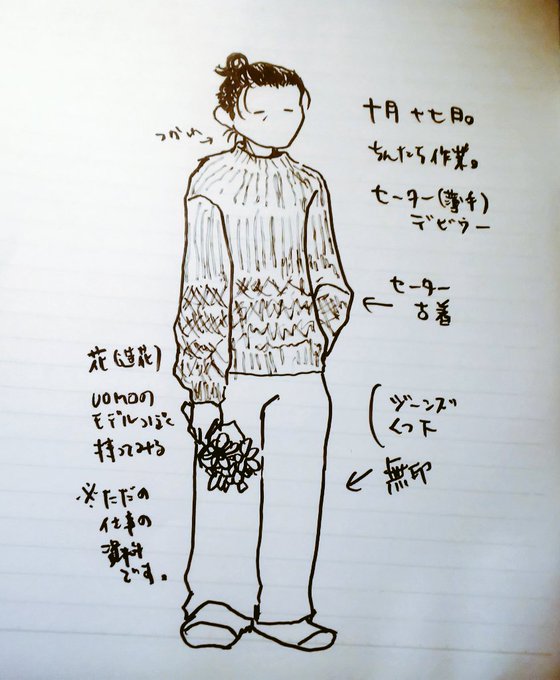 十月 十七日。
ちんたら作業。
セーター(薄手)
デビュー
セーター
古着
花(造花)
UOMOの
モデルっぽく
持ってみる
ジーンズ
くつ下
無印
※ただの
仕事の
資料
です。